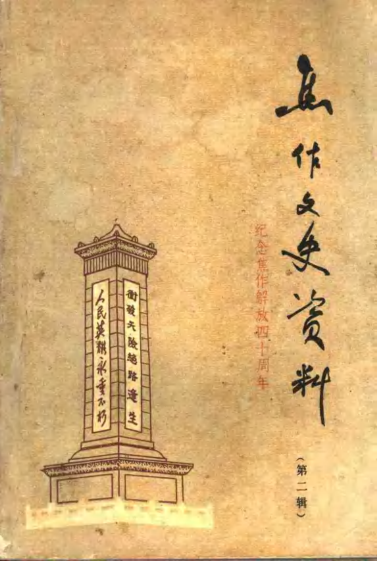 焦作文史资料
(第二辑)
纪念焦作解放四十周年
天險絕路逢生
人民英雄永垂不朽